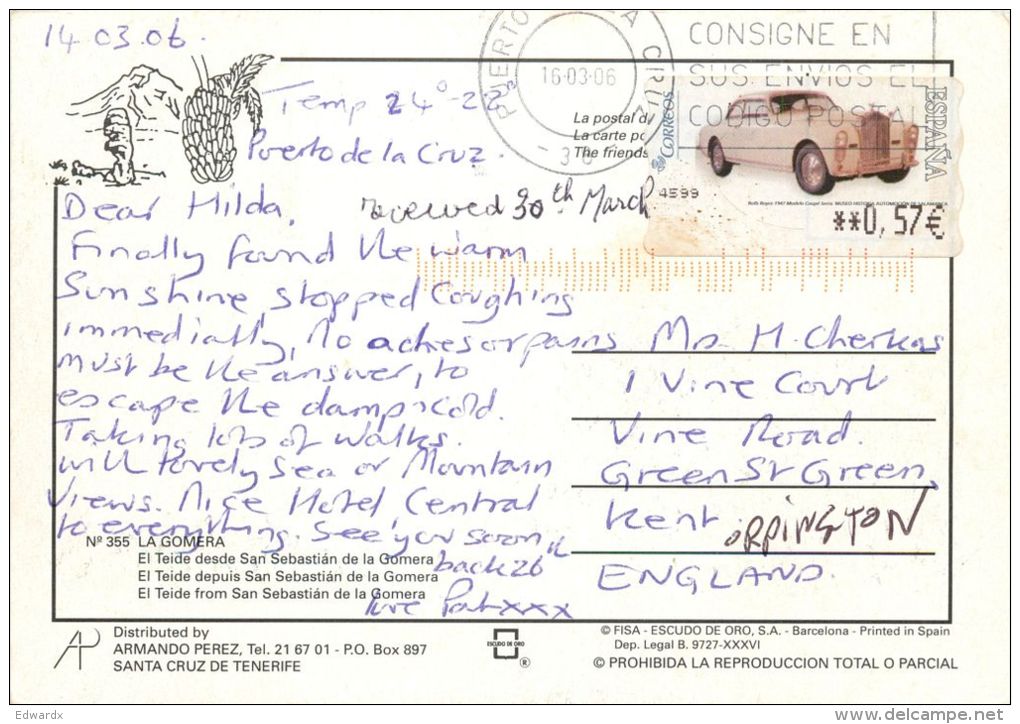 14.03.06.
Temp 24°-
Puerto de la Cruz.
Dear Hilda,
received 30th March
Finally found the warm
Sunshine stopped Coughing
immediatly, no aches or pains
must be the answer, to
escape the damp & cold.
Taking lots of walks.
with lovely Sea or Mountain
Views. Nice Hotel Central
to everything. See you soon
back 26th
love Pat xxx
PUERTO LA CRUZ
16-03-06
CONSIGNE EN
SUS ENVIOS EL
CODIGO POSTAL
La postal d
La carte po
The friends
CORREOS
ESPAÑA
4599
Rolls Royce 1947 Modelo Coupé Serie. MUSEO HISTORIA AUTOMOCIÓN DE SALAMANCA
**0,57€
Mrs H. Cherkas
1 Vine Court
Vine Road.
Green St Green,
Kent ORPINGTON
ENGLAND.
Nº 355 LA GOMERA
El Teide desde San Sebastián de la Gomera
El Teide depuis San Sebastián de la Gomera
El Teide from San Sebastián de la Gomera
AP
Distributed by
ARMANDO PEREZ, Tel. 21 67 01 - P.O. Box 897
SANTA CRUZ DE TENERIFE
ESCUDO DE ORO
®
© FISA - ESCUDO DE ORO, S.A. - Barcelona - Printed in Spain
Dep. Legal B. 9727-XXXVI
© PROHIBIDA LA REPRODUCCION TOTAL O PARCIAL
Edwardx
www.delcampe.net